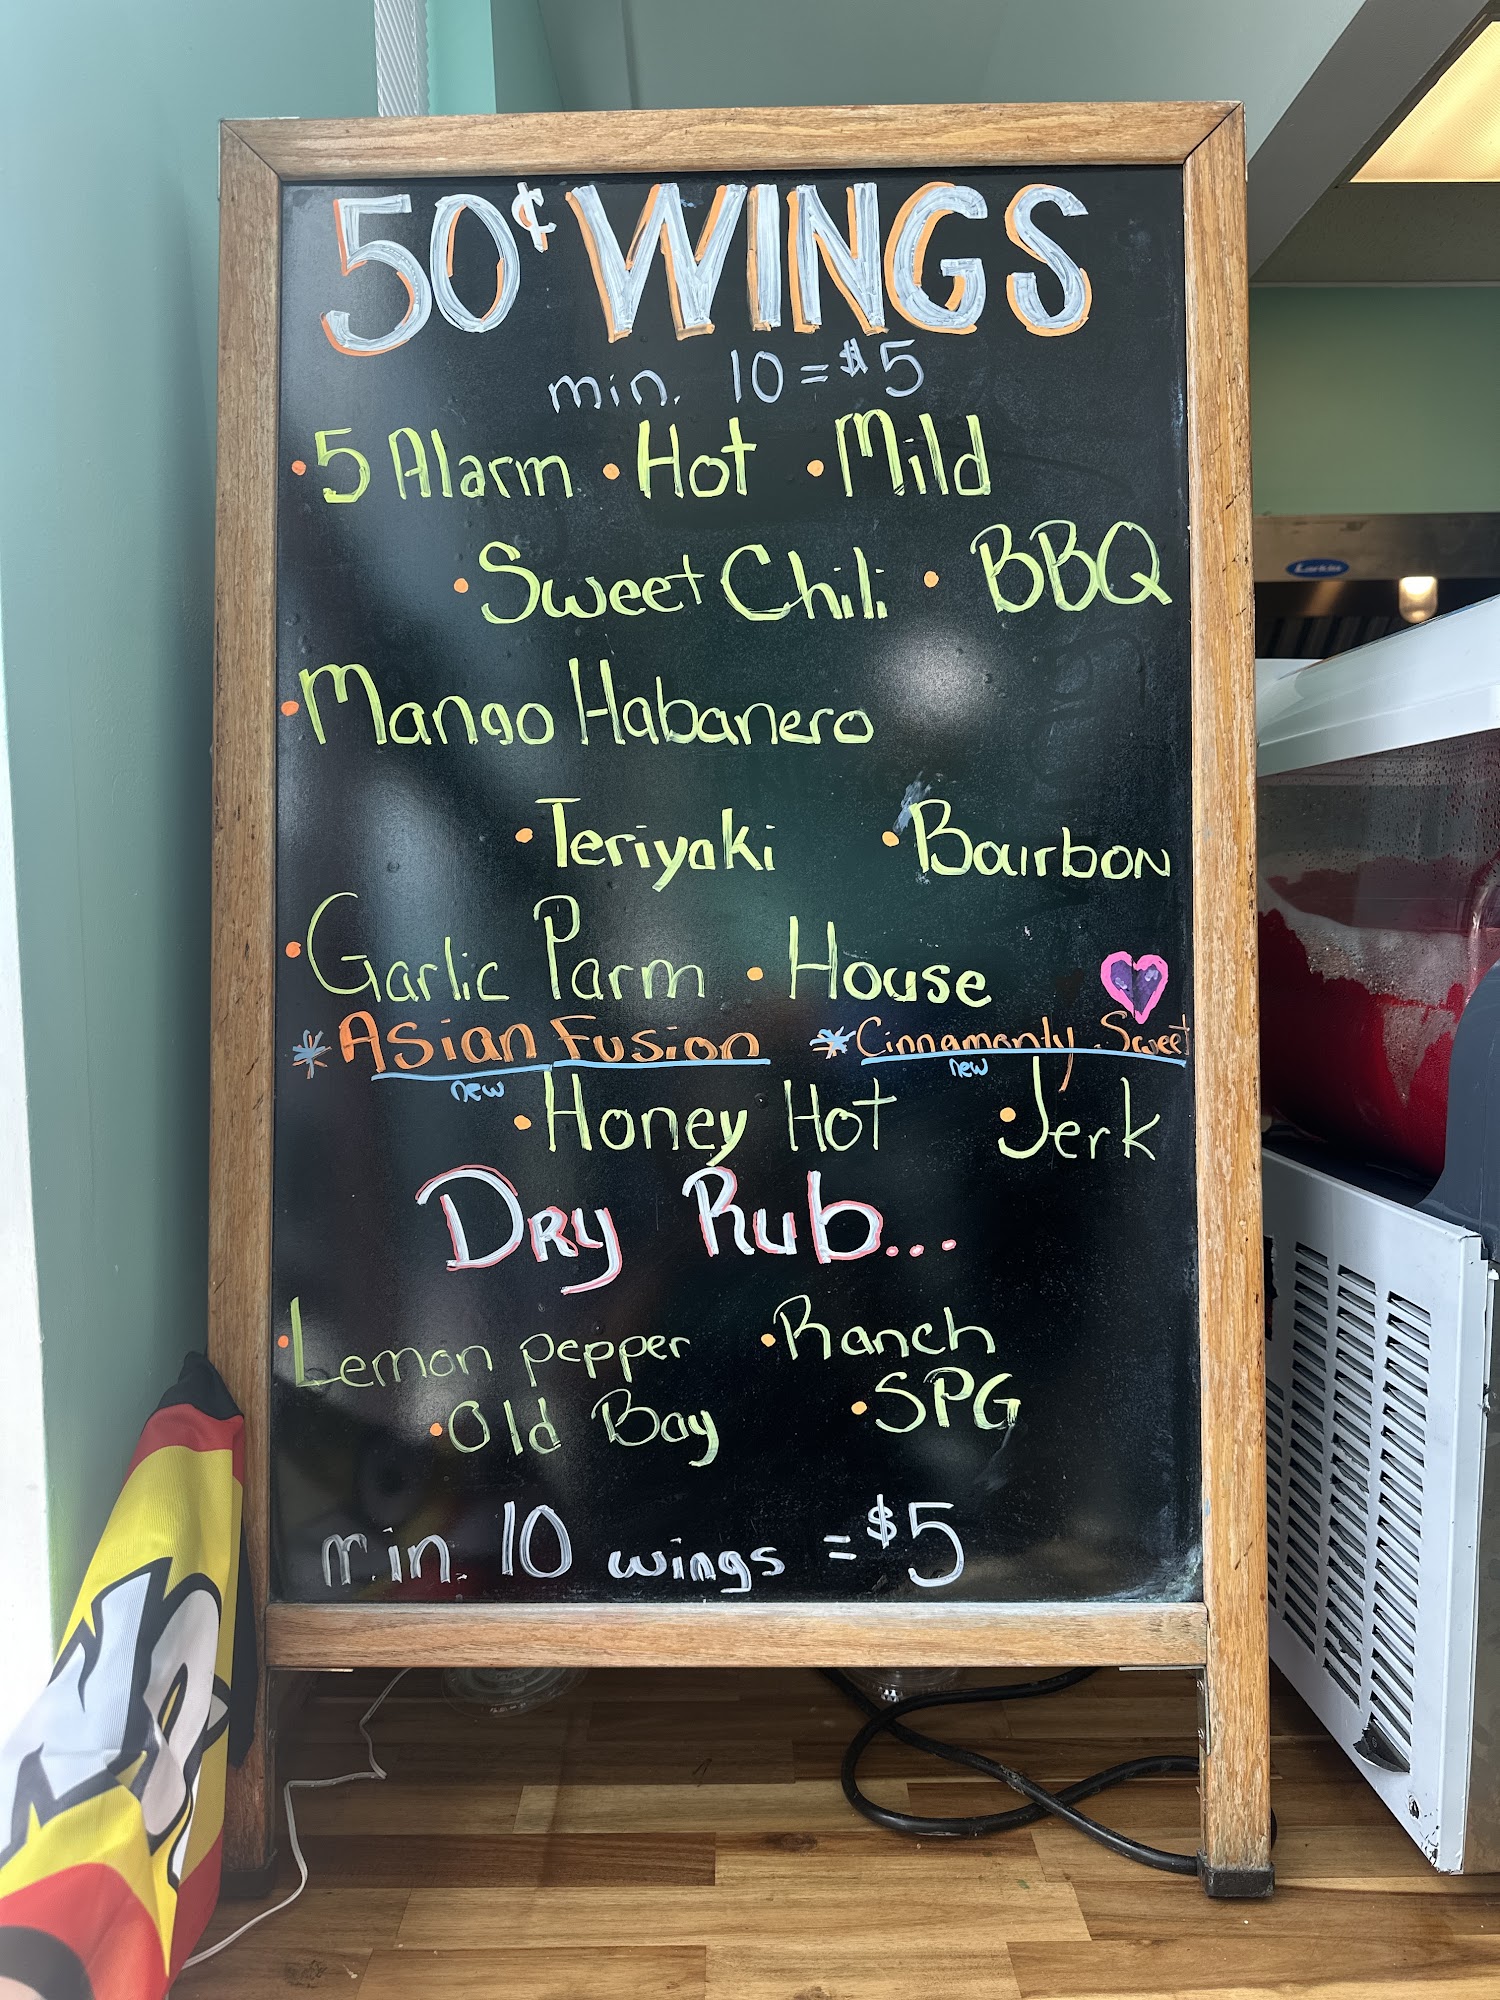 50¢ WINGS
min. 10 = $5
• 5 Alarm • Hot • Mild
• Sweet Chili • BBQ
• Mango Habanero
• Teriyaki • Bourbon
• Garlic Parm • House
* Asian Fusion * Cinnamonly Sweet
new new
• Honey Hot • Jerk
Dry Rub...
• Lemon pepper • Ranch
• Old Bay • SPG
min. 10 wings = $5
Larkin